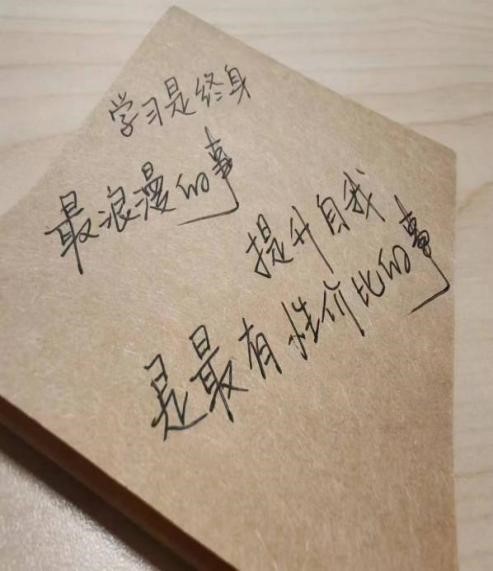 学习是终身
最浪漫的事
提升自我
是最有性价比的事